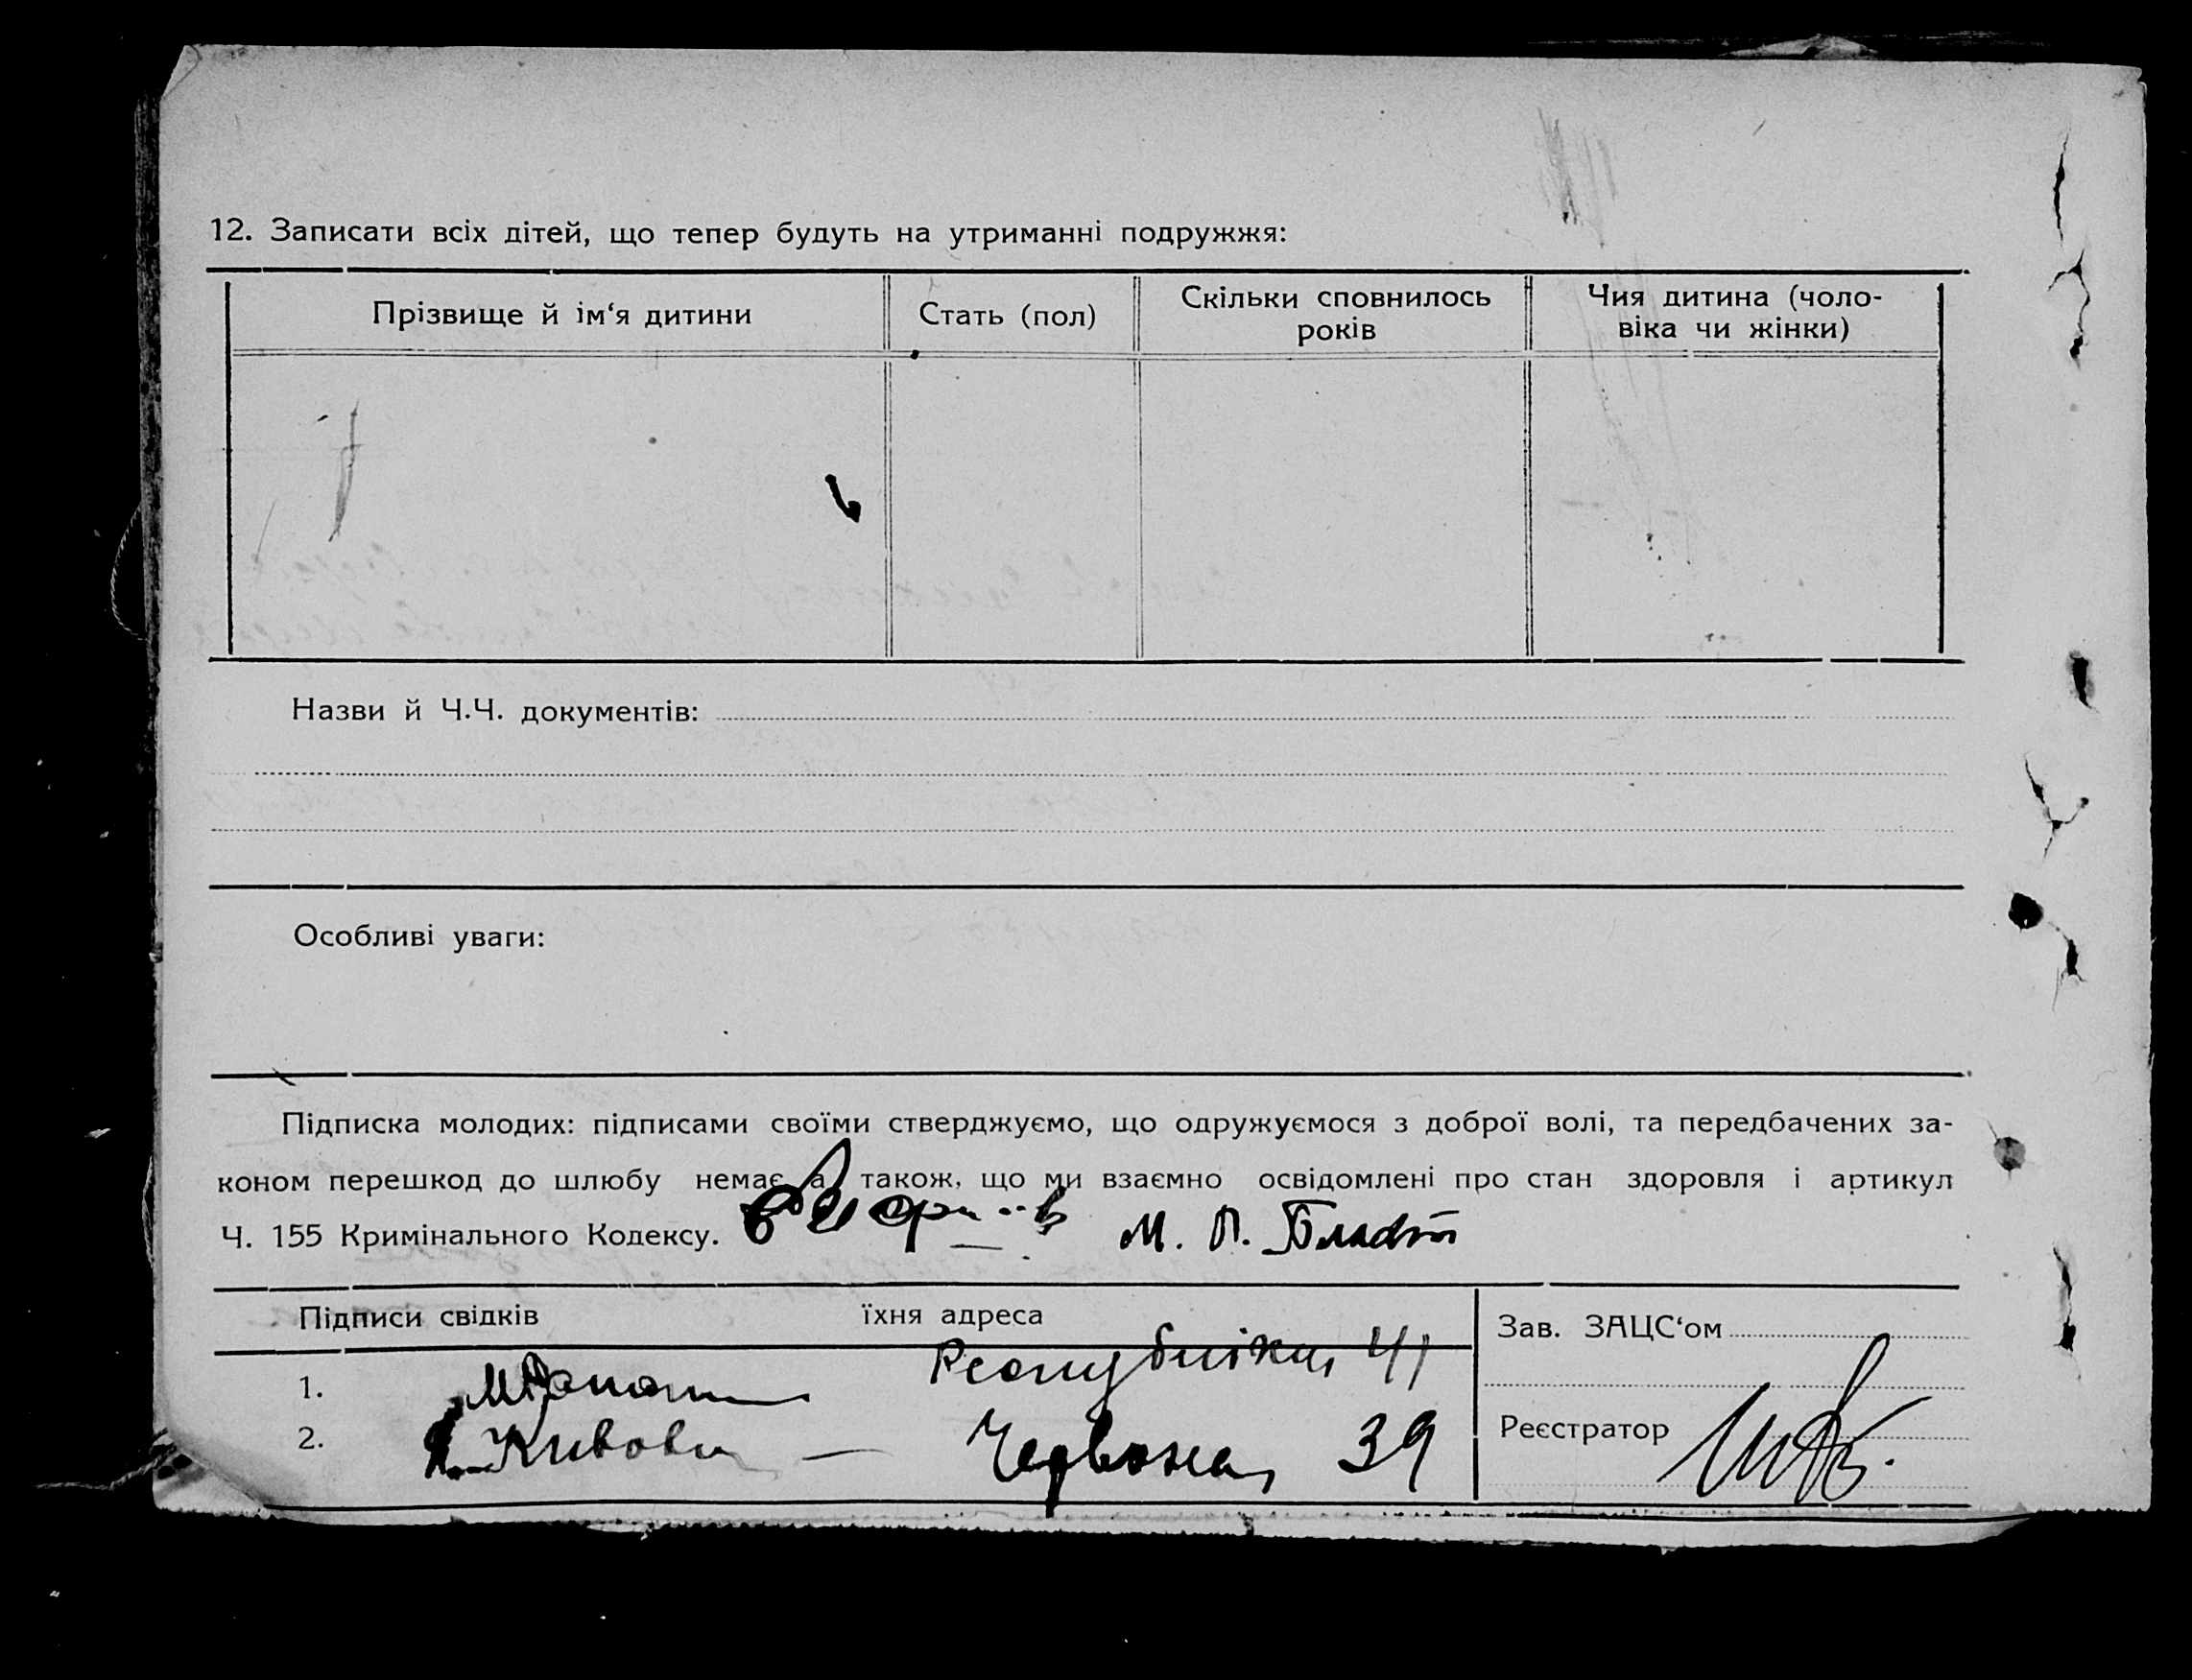 12. Записати всіх дітей, що тепер будуть на утриманні подружжя:
Прізвище й ім‘я дитини
Стать (пол)
Скільки сповнилось
років
Чия дитина (чоло-
віка чи жінки)
Назви й Ч.Ч. документів:
Особливі уваги:
Підписка молодих: підписами своїми стверджуємо, що одружуємося з доброї волі, та передбачених за-
коном перешкод до шлюбу немає а також, що ми взаємно освідомлені про стан здоровля і артикул
Ч. 155 Кримінального Кодексу. М. П.
Підписи свідків
їхня адреса
Зав. ЗАЦС‘ом
1. Республіки 41
2. Червона 39
Реєстратор